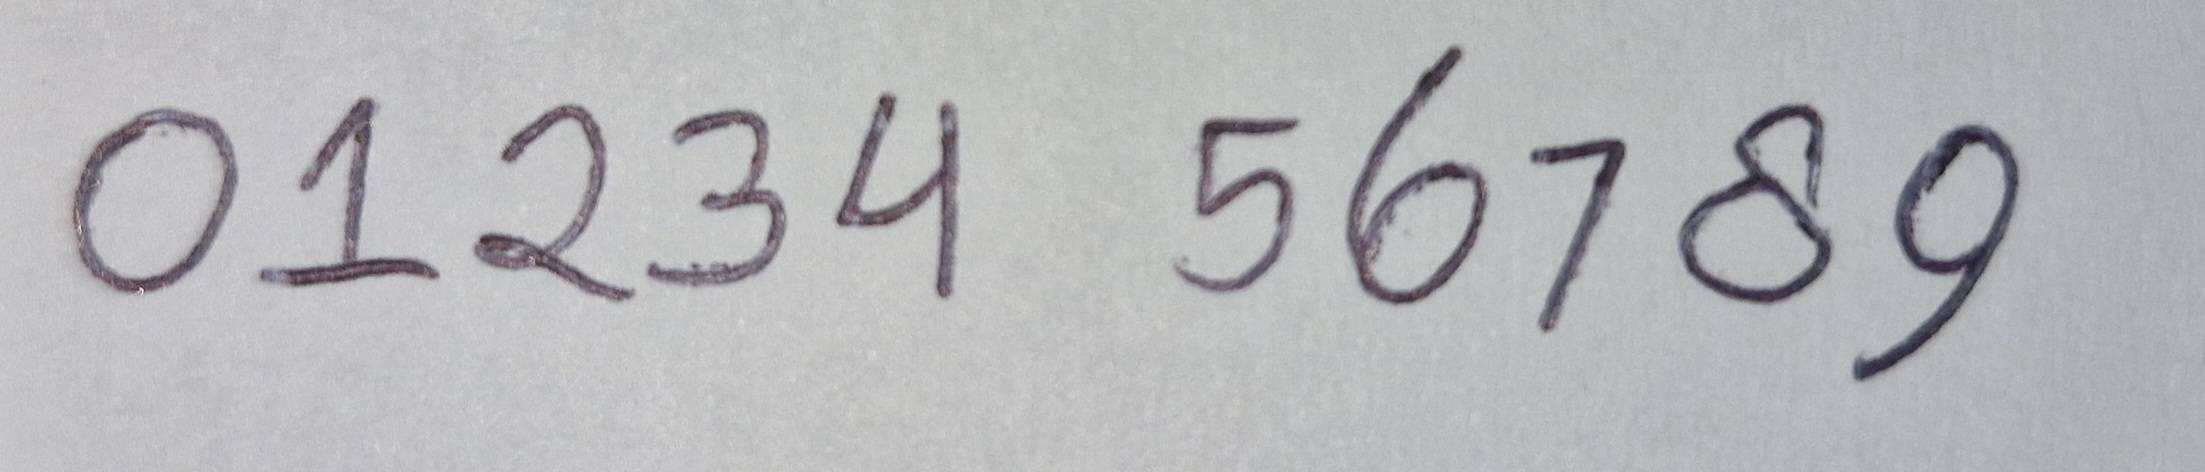 01234 56789